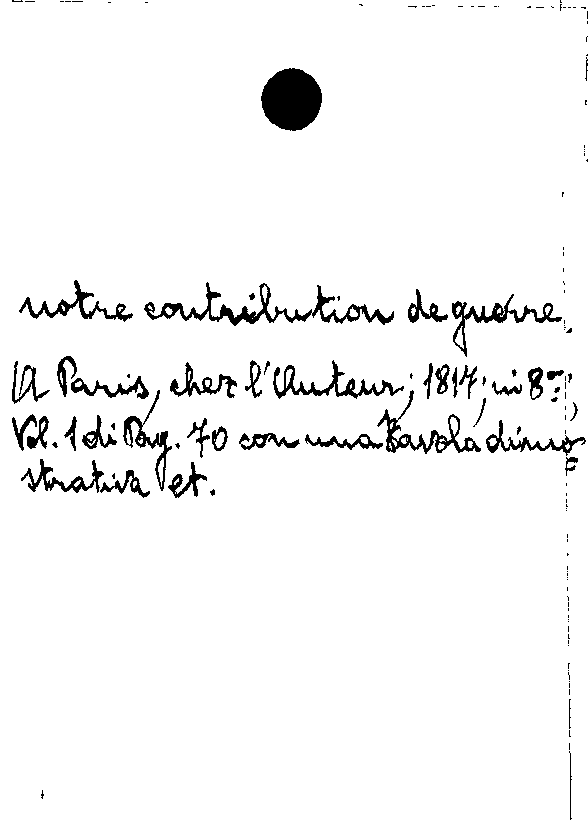 notre contribution de guerre.
A Paris, chez l'Auteur; 1817; in 8°:
Vol. 1 di Pag. 70 con una Tavola dimo
strativa et.